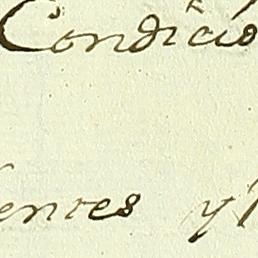 Condicio
entes y